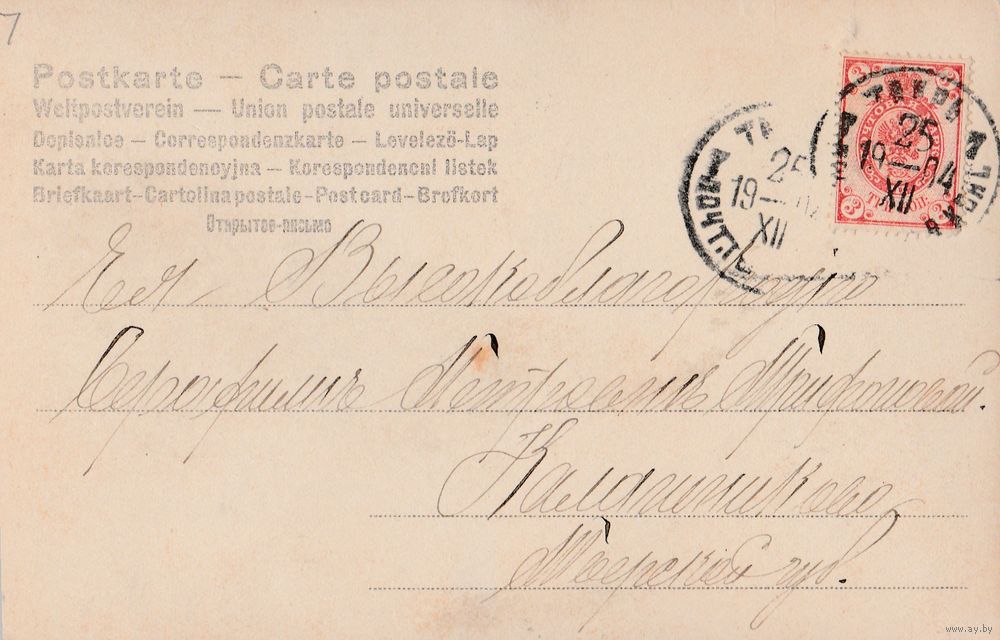 Postkarte — Carte postale
Weltpostverein — Union postale universelle
Dopisnice — Correspondenzkarte — Levelező-Lap
Karta korespondencyjna — Korespondencni listek
Briefkaart-Cartolina postale-Post card-Brefkort
Открытое-письмо
ТВЕРЬ
25
1904
XII
25
19—04
XII
ТРИ КОП.
3 3
Ея Высокоблагородiю
Серафимѣ Петровнѣ Трифановской.
Тверской губ.
www.ay.by